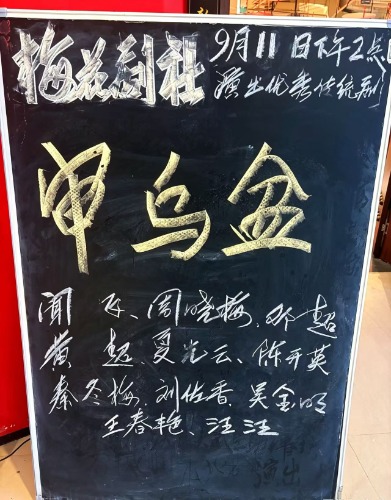 梅花剧社
9月11日下午2点
演出优秀传统剧
审乌盆
闻 飞、周晓梅、邓 超
黄 超、夏光云、陈开英
秦冬梅、刘佐香、吴金明
王春艳、汪汪
演出